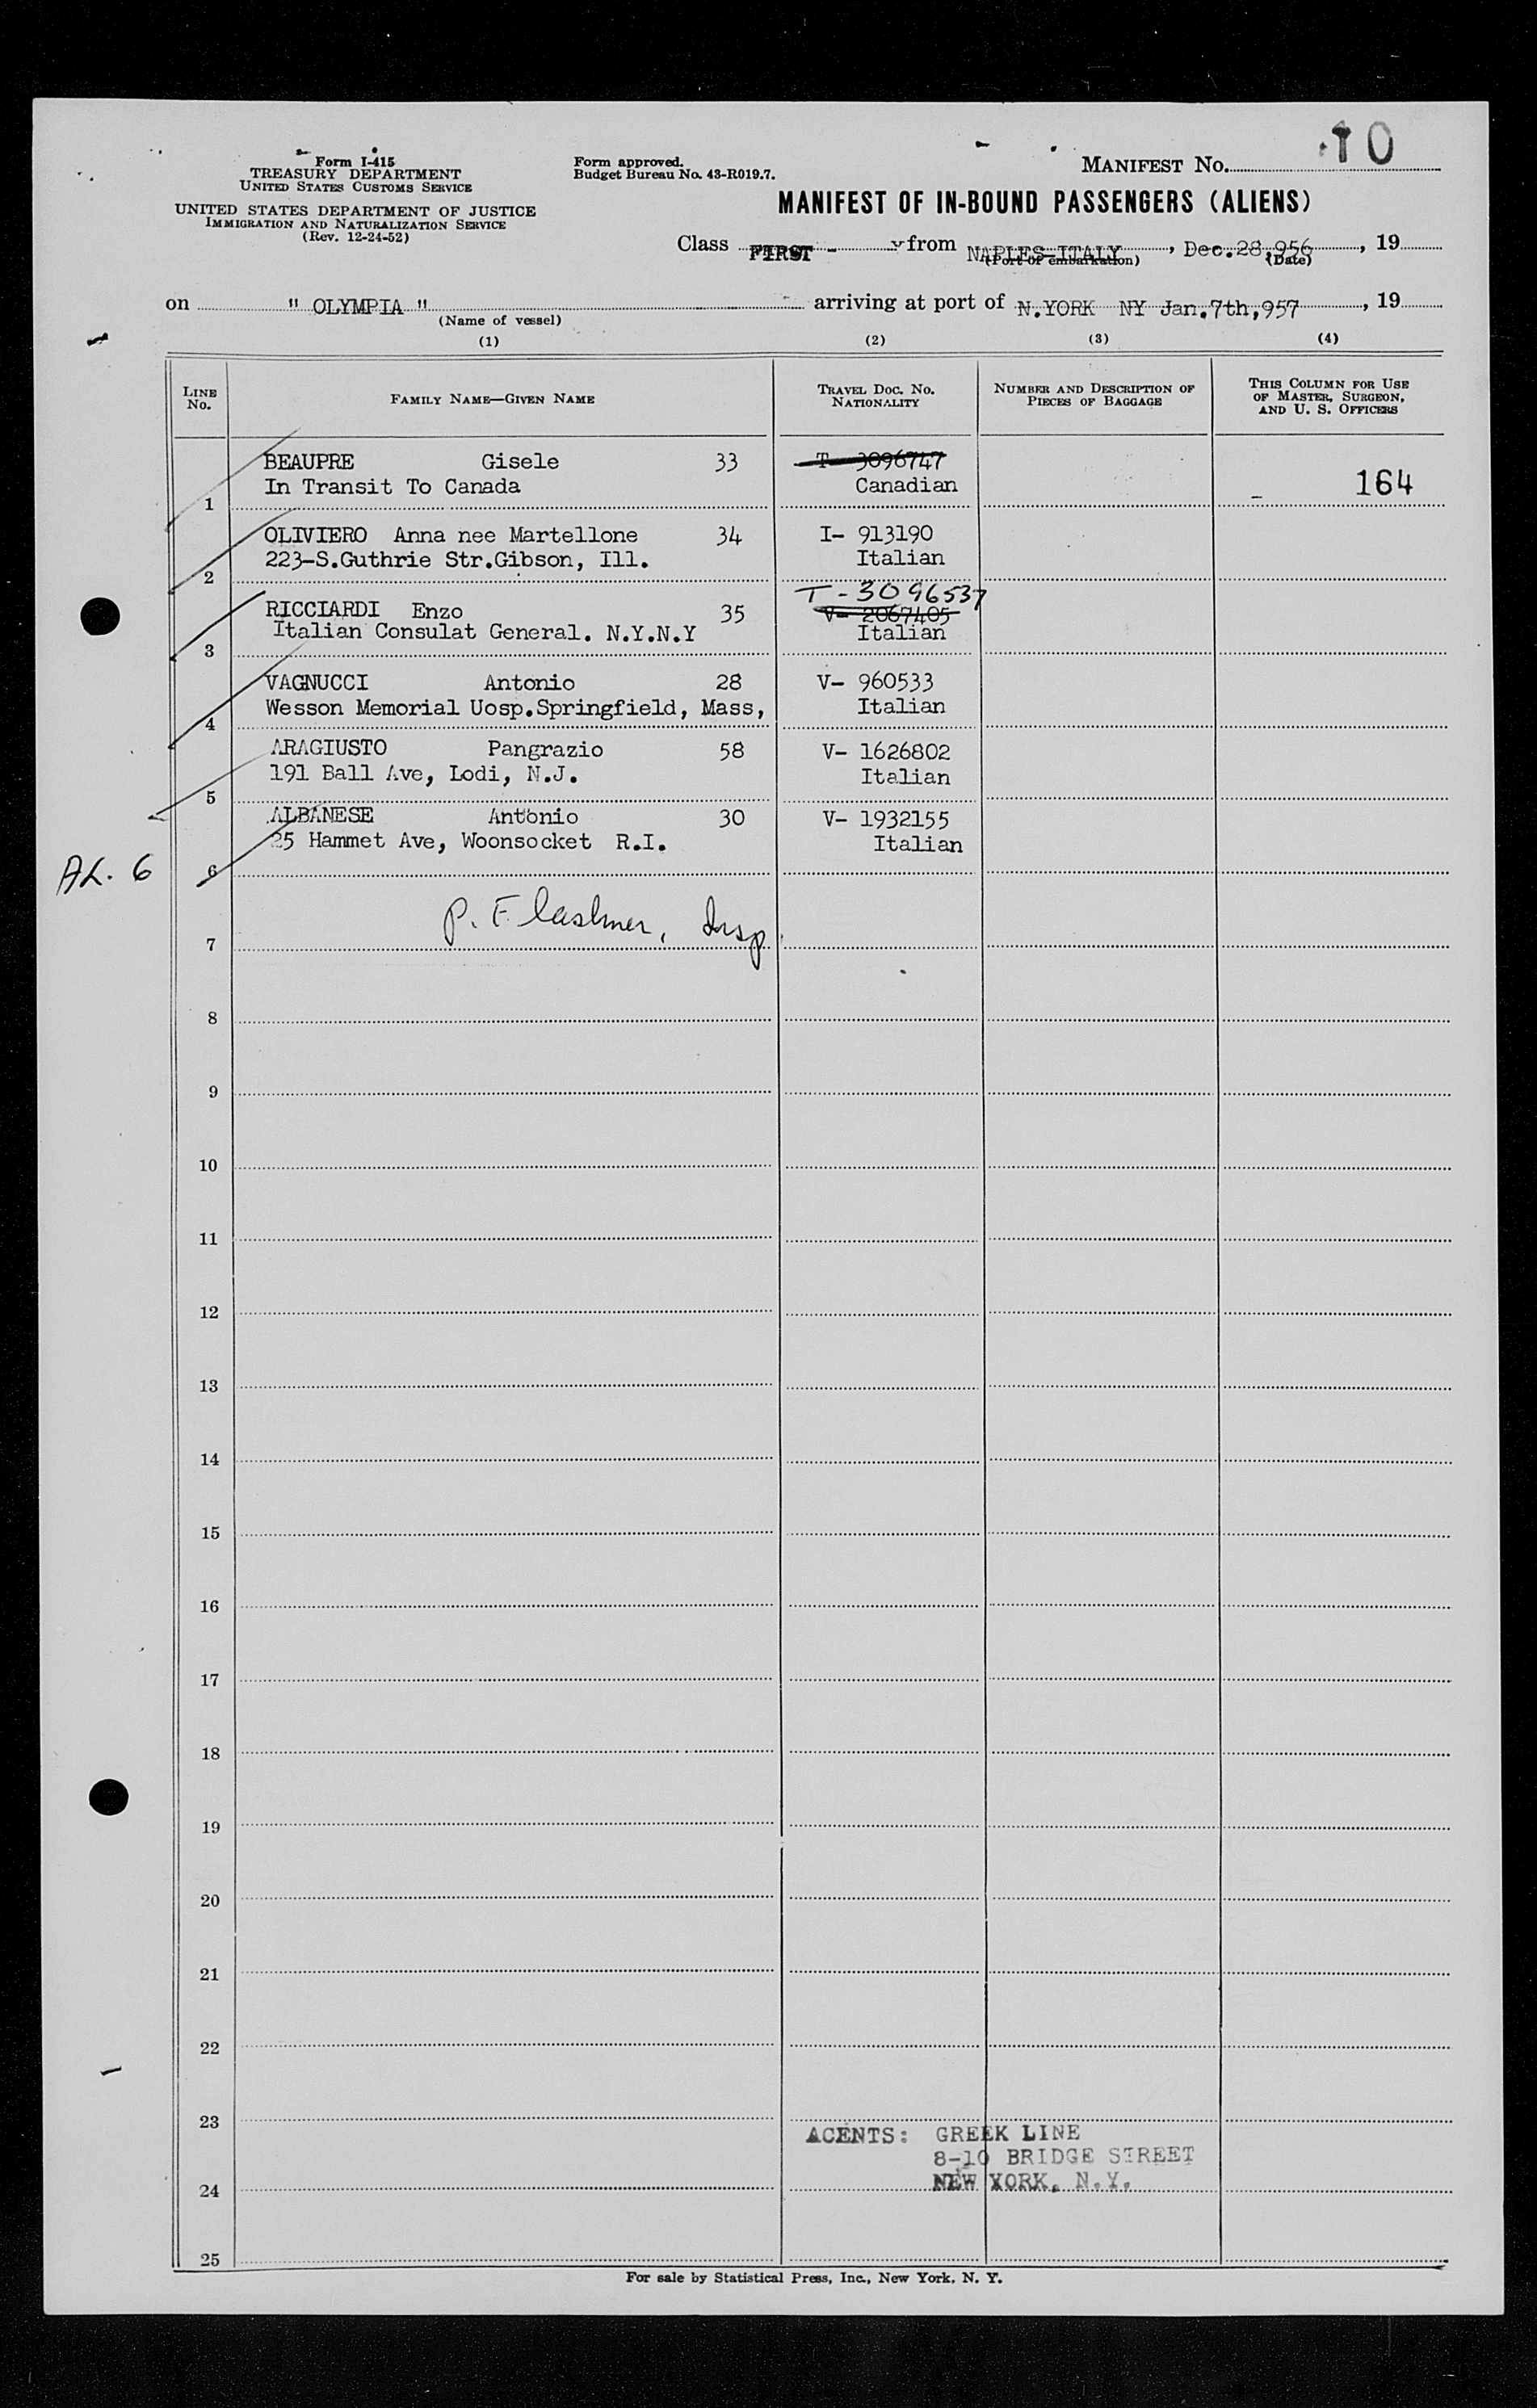 Form I-415
TREASURY DEPARTMENT
UNITED STATES CUSTOMS SERVICE
UNITED STATES DEPARTMENT OF JUSTICE
IMMIGRATION AND NATURALIZATION SERVICE
(Rev. 12-24-52)
Form approved.
Budget Bureau No. 43-R019.7.
MANIFEST No. 10
MANIFEST OF IN-BOUND PASSENGERS (ALIENS)
Class FIRST - from NAPLES-ITALY, Dec.28,956, 19
(Port of embarkation) (Date)
on " OLYMPIA " arriving at port of N.YORK NY Jan.7th,957, 19
(Name of vessel)
(1) (2) (3) (4)
LINE No. FAMILY NAME—GIVEN NAME TRAVEL DOC. No. NATIONALITY NUMBER AND DESCRIPTION OF PIECES OF BAGGAGE THIS COLUMN FOR USE OF MASTER, SURGEON, AND U. S. OFFICERS
BEAUPRE Gisele 33 T- 3096747
In Transit To Canada Canadian 164
1
OLIVIERO Anna nee Martellone 34 I- 913190
223-S.Guthrie Str.Gibson, Ill. Italian
2
T-3096537
RICCIARDI Enzo 35 V- 2067405
Italian Consulat General. N.Y.N.Y Italian
3
VAGNUCCI Antonio 28 V- 960533
Wesson Memorial Uosp.Springfield, Mass, Italian
4
ARAGIUSTO Pangrazio 58 V- 1626802
191 Ball Ave, Lodi, N.J. Italian
5
ALBANESE Antonio 30 V- 1932155
25 Hammet Ave, Woonsocket R.I. Italian
6
P. F. Insp.
7
8
9
10
11
12
13
14
15
16
17
18
19
20
21
22
23
AGENTS: GREEK LINE
8-10 BRIDGE STREET
NEW YORK, N.Y.
24
25
For sale by Statistical Press, Inc., New York, N. Y.